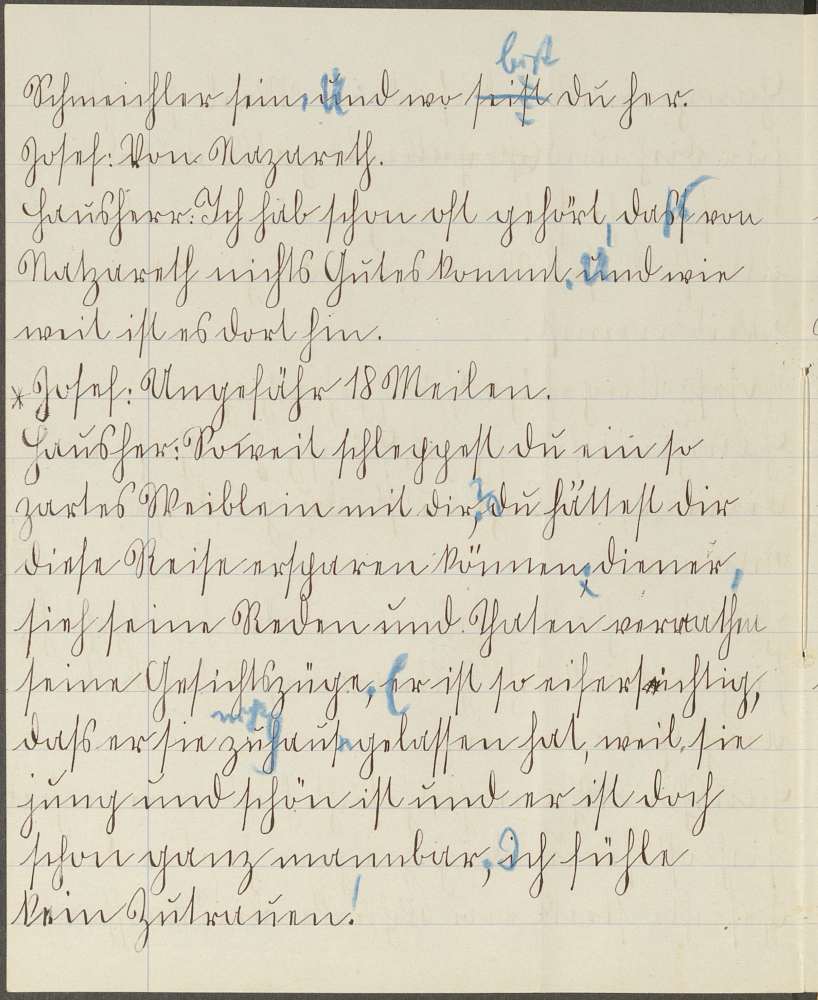 bist
Schmeichler sein. Und wo seist du her.
Josef: Von Nazareth.
Hausherr: Ich hab schon oft gehört, dass von
Natzareth nichts Gutes kommt. Und wie
weit ist es dort hin.
* Josef: Ungefähr 18 Meilen.
Hausher: Soweit schleppest du ein so
zartes Weiblein mit dir, du hättest dir
diese Reise ersparen können, diener,
sieh seine Reden und Thaten verrathen
seine Gesichtszüge. Er ist so eifersüchtig,
nicht
dass er sie zuhaus gelassen hat, weil sie
jung und schön ist und er ist doch
schon ganz mannbar, ich fühle
kein Zutrauen!